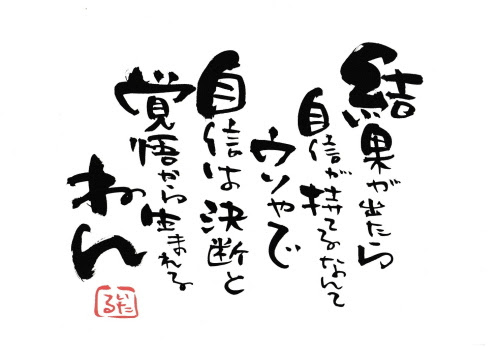 結果が出たら
自信が持てるなんて
ウソやで
自信は決断と
覚悟から生まれる
ねん